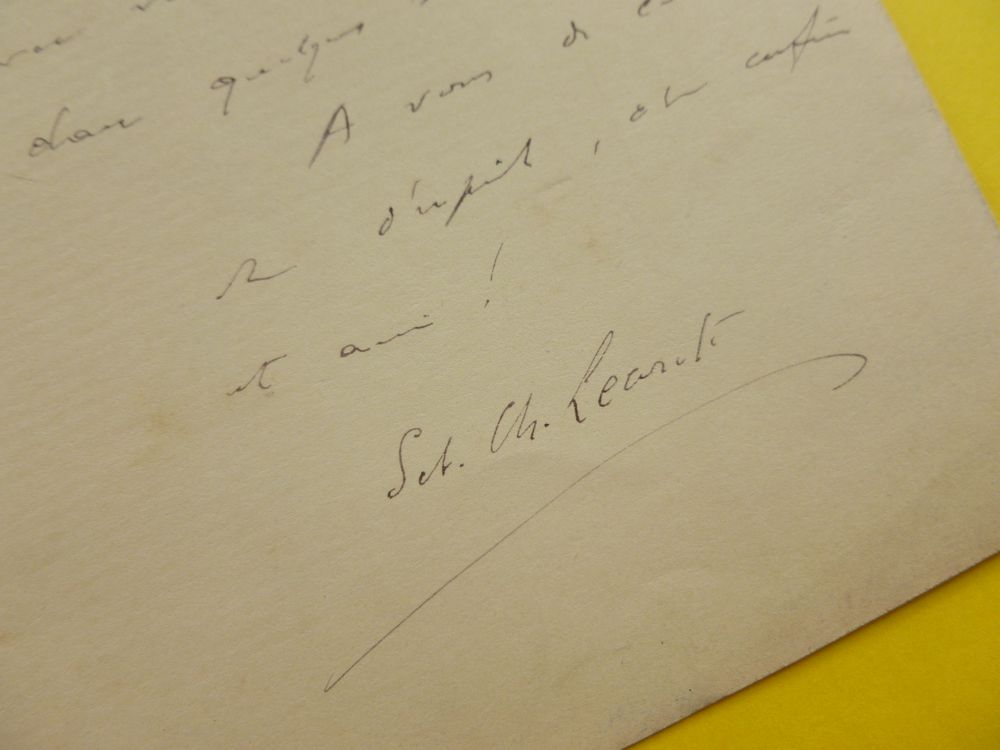 dans quelques
A vous de
et d'esprit, cher confrère
et ami !
Séb. Ch. Leconte